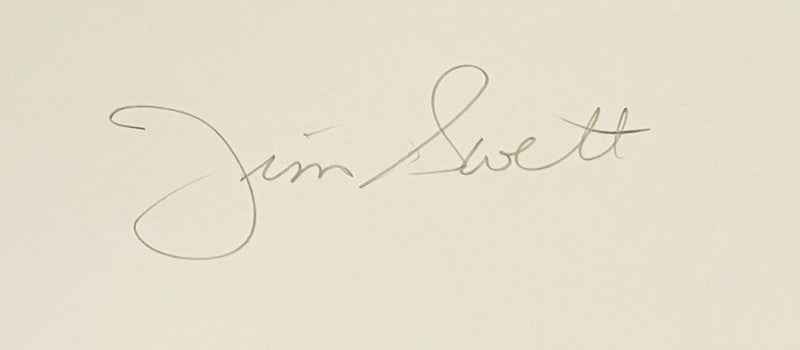 Jim Swett